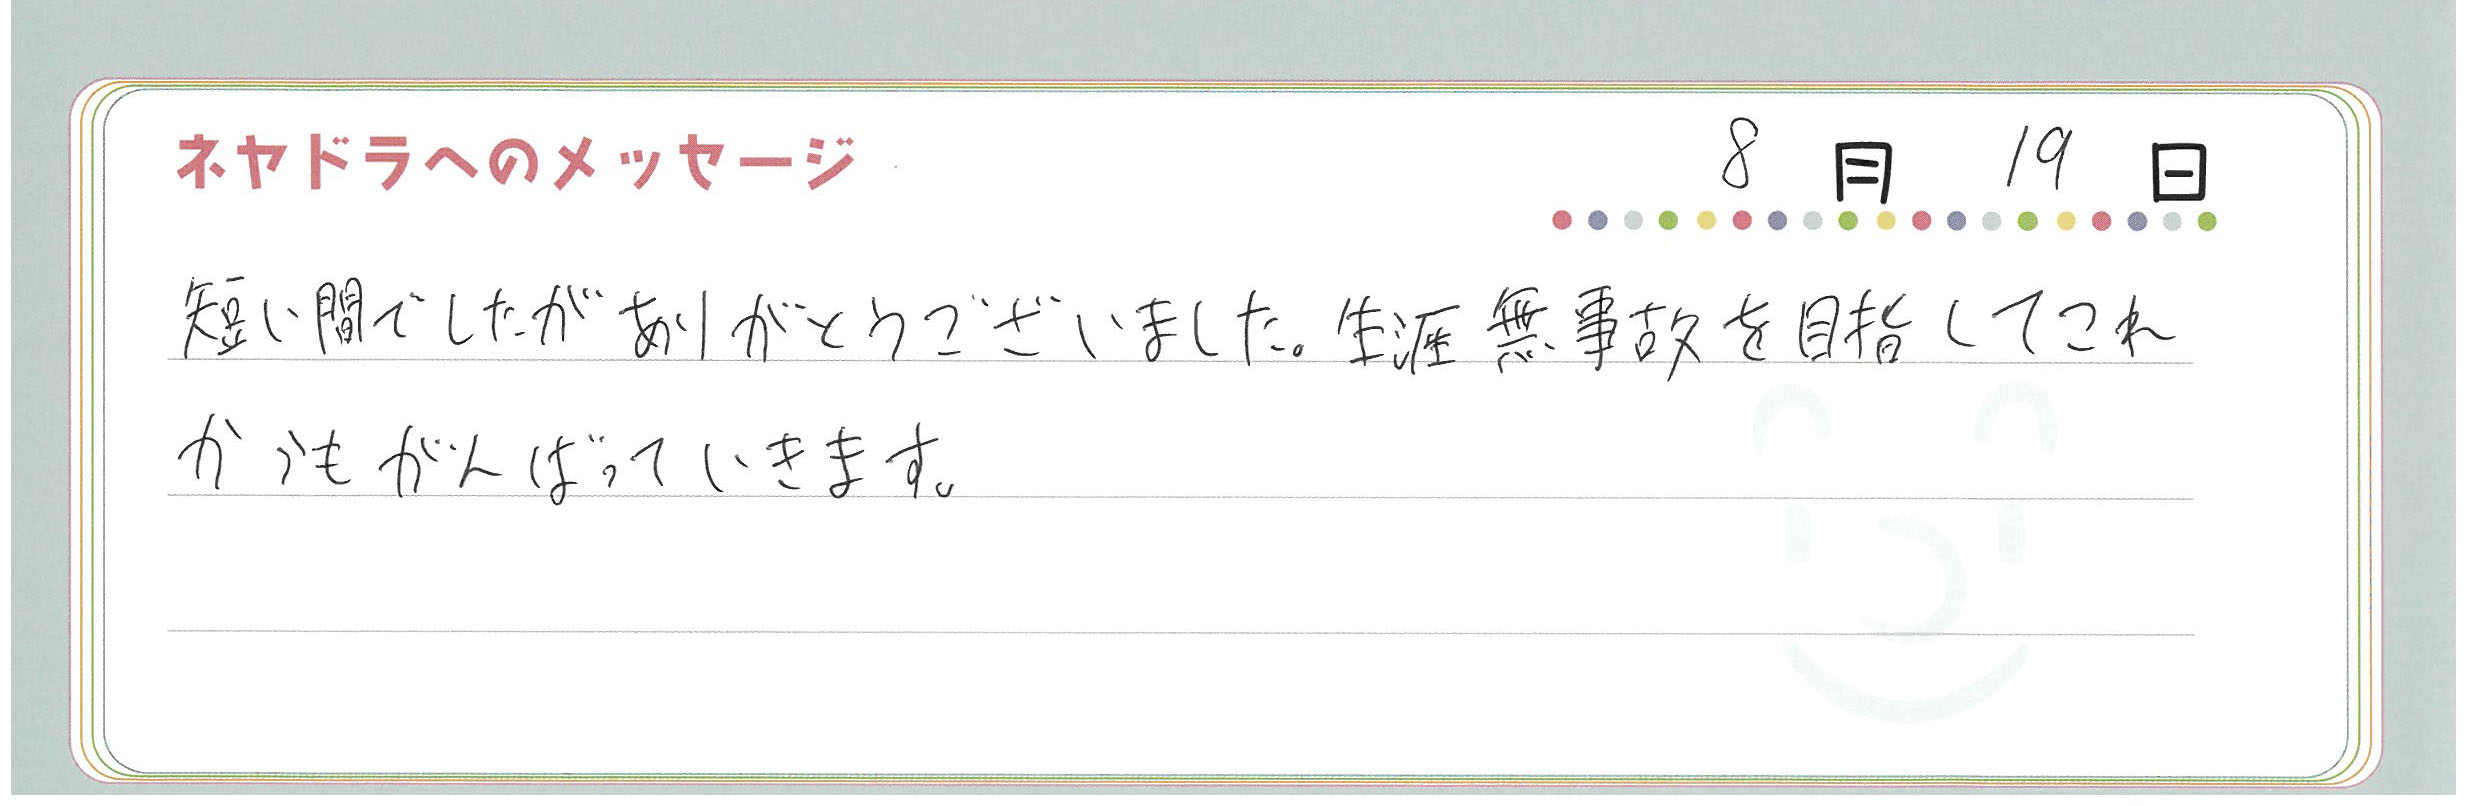 ネヤドラへのメッセージ 8月19日
短い間でしたがありがとうございました。生涯無事故を目指してこれ
からもがんばっていきます。